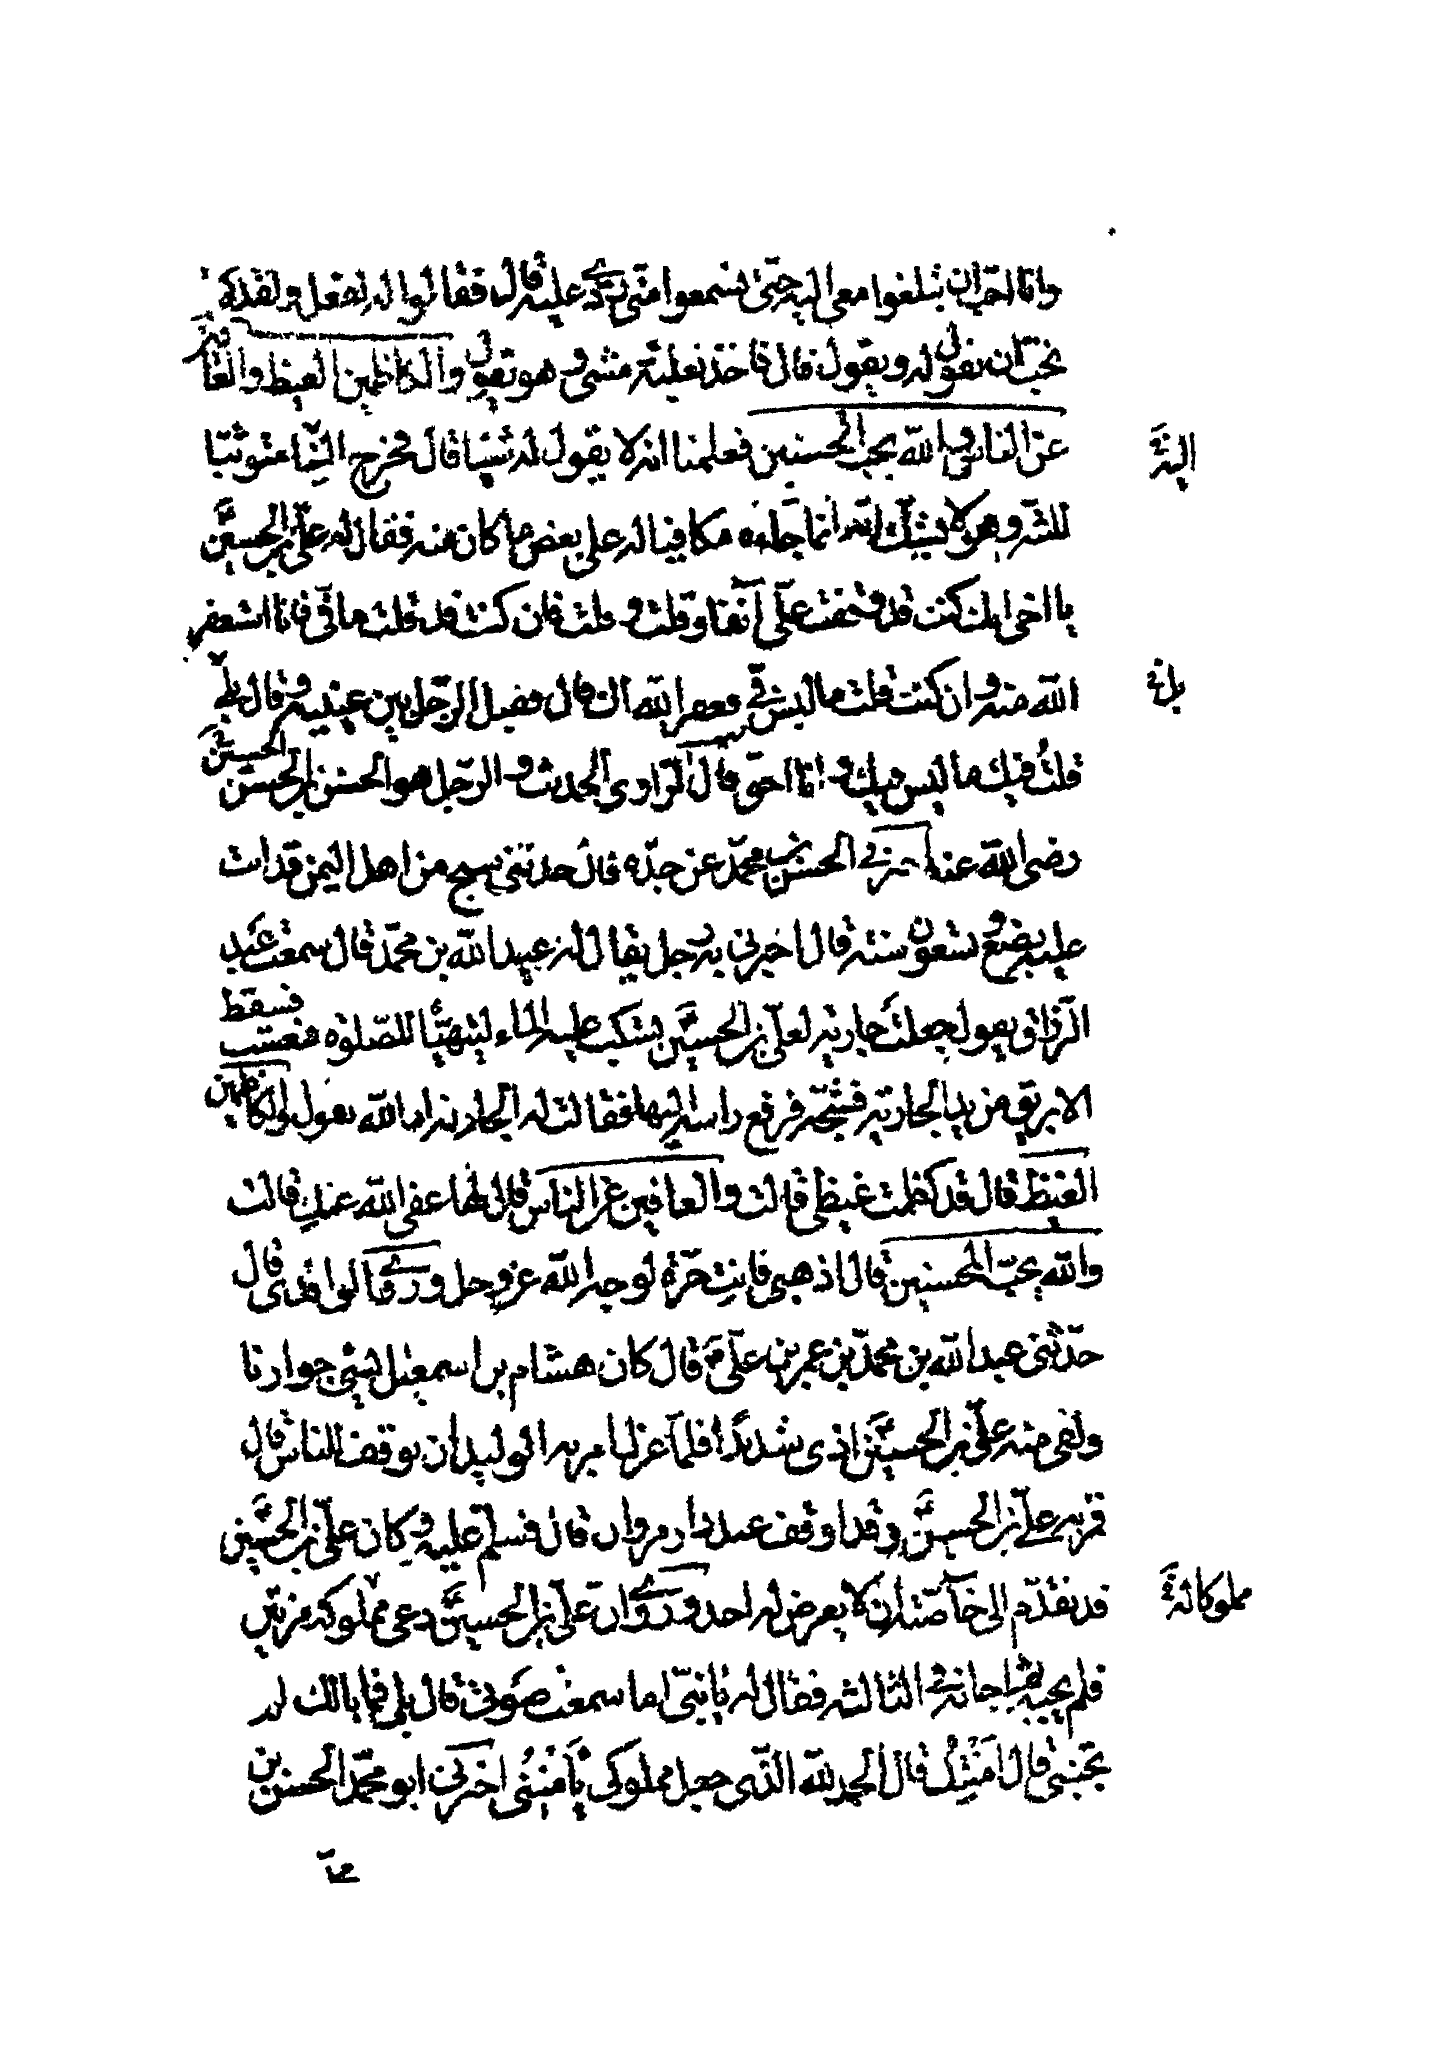 وانا احب ان تبلغوا معى اليه حتى تسمعوا منى رد عليه قال فقالوا له نفعل ولقد كنا
نحب ان نقول له ويقول قال فاخذ نعليه ومشى وهو يقول والكاظمين الغيظ والعافين
عن الناس والله يحب المحسنين فعلمنا انه لا يقول له شيئا قال فخرج الينا متوثبا
اليه
للشر وهو لا يشك انه انما جاءه مكافيا له على بعض ما كان منه فقال له على بن الحسين
يا اخى انك كنت قد وقفت على آنفا وقلت وقلت فان كنت قد قلت ما فى فانا استغفر
الله منه وان كنت قلت ما ليس فى فغفر الله لك قال فقبل الرجل بين عينيه وقال بلى
بل
قلت فيك ما ليس فيك وانا احق قال الراوى الحديث والرجل هو الحسن بن الحسن
رضى الله عنه اخبرنى الحسن بن محمد عن جده قال حدثنى شيخ من اهل اليمن قد اتت
عليه بضع وتسعون سنة قال اخبرنى به رجل يقال له عبيد الله بن محمد قال سمعت عبد
الرزاق يقول جعلت جارية لعلى بن الحسين تسكب عليه الماء ليتهيأ للصلوة فنعست فسقط
الابريق من يد الجارية فشجه فرفع راسه اليها فقالت له الجارية ان الله يقول والكاظمين
الغيظ قال قد كظمت غيظى قالت والعافين عن الناس قال لها عفى الله عنك قالت
والله يحب المحسنين قال اذهبى فانت حرة لوجه الله عز وجل وروى قالوا قدى قال
حدثنى عبد الله بن محمد بن عمر بن على قال كان هشام بن اسمعيل يسئ جوارنا
ولقى منه على بن الحسين اذى شديدا فلما عزل امر به الوليد ان يوقف للناس قال
فمر به على بن الحسين وقد اوقف عند دار مروان قال فسلم عليه وكان على بن الحسين
قد تقدم الى خاصته ان لا يعرض له احد وروى ان على بن الحسين دعى مملوكه مرتين
مملوكا له
فلم يجبه ثم اجابه فى الثالثة فقال له يا بنى اما سمعت صوتى قال بلى فما بالك لم
تجبنى قال امنتك قال الحمد لله الذى جعل مملوكى يأمننى اخبرنى ابو محمد الحسن بن